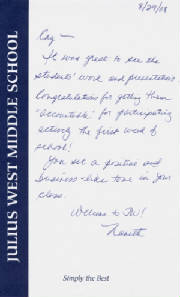 8/29/08
JULIUS WEST MIDDLE SCHOOL
Cay —
It was great to see the
students' work and presentations.
Congratulations for getting them
"accountable" for participating
actively the first week of
school!
You set a positive and
business-like tone in your
class.
Welcome to JW!
Nanette
Simply the Best